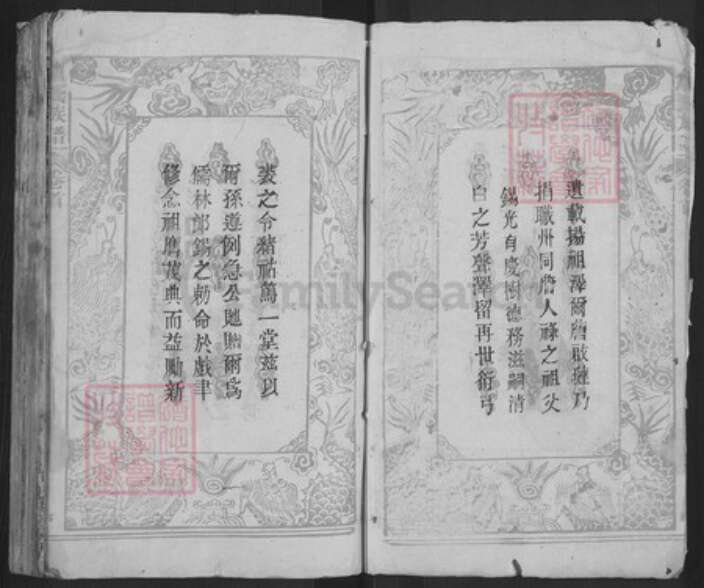 遺載揚祖澤爾詹啟璉乃
捐職州同詹人祿之祖父
錫光有慶樹德務滋嗣清
白之芳聲澤留再世衍弓
裘之令緒祜篤一堂茲以
爾孫遵例急公貤贈爾為
儒林郎錫之勅命於戲聿
修念祖膺茂典而益勵新
FamilySearch